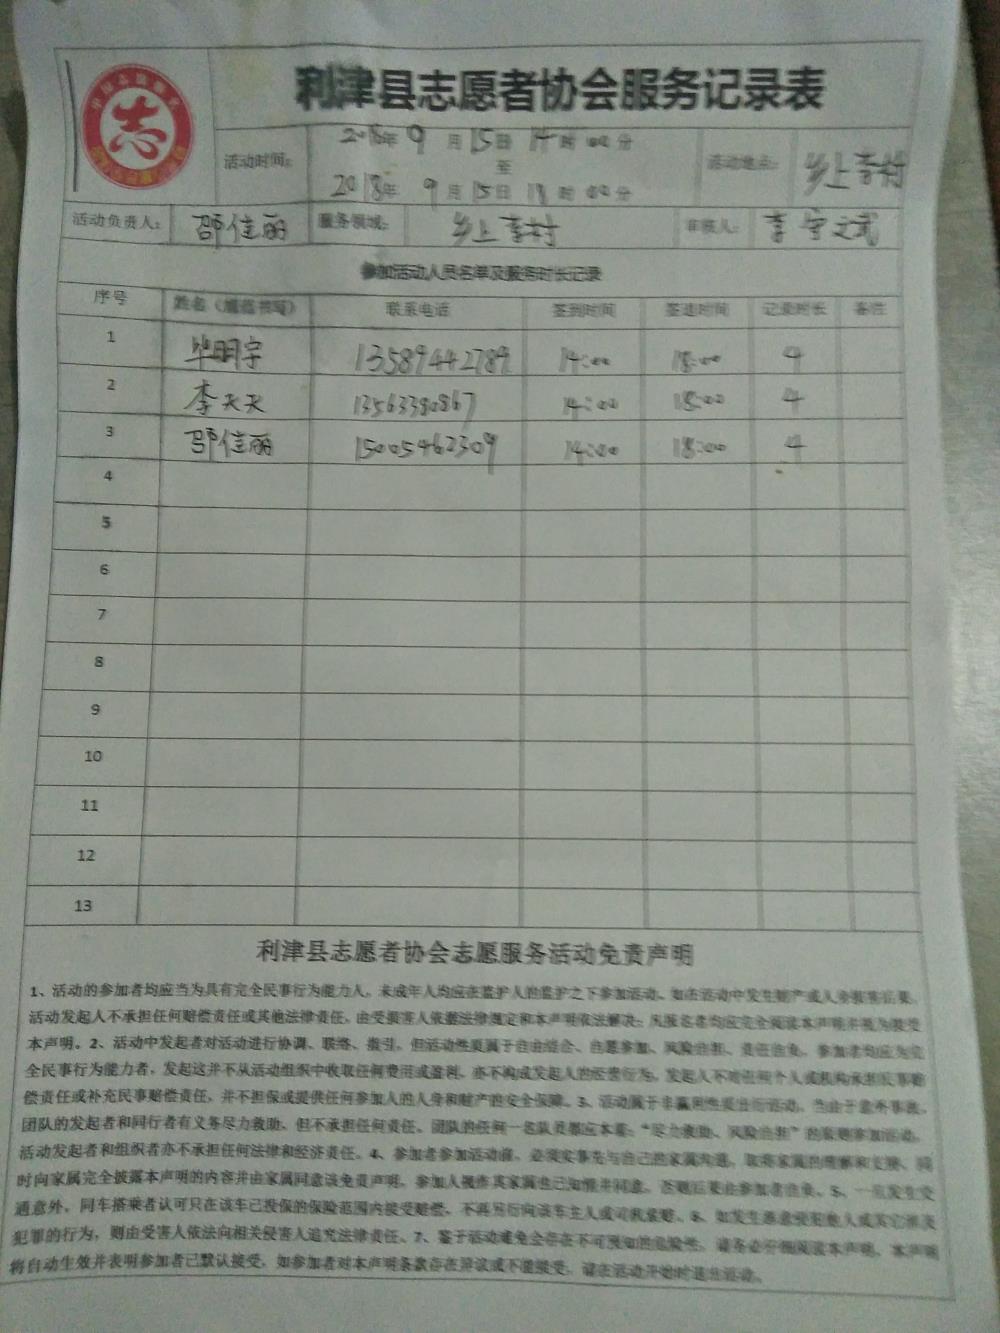 利津县志愿者协会服务记录表
志
活动时间：
2018年 9 月 15日 14 时 00 分
至
2018年 9 月 15 日 18 时 00 分
活动地点：
乡上李村
活动负责人： 邵佳丽 服务领域： 乡上李村 审核人： 李守文武
参加活动人员名单及服务时长记录
序号 姓名（规范书写） 联系电话 签到时间 签退时间 记录时长 备注
1 毕明宇 13589442789 14:00 18:00 4
2 李天天 13563380867 14:00 18:00 4
3 邵佳丽 15005462309 14:00 18:00 4
4
5
6
7
8
9
10
11
12
13
利津县志愿者协会志愿服务活动免责声明
1、活动的参加者均应当为具有完全民事行为能力人，未成年人均应在监护人的监护之下参加活动。如在活动中发生财产或人身损害后果，
活动发起人不承担任何赔偿责任或其他法律责任，由受损害人依据法律规定和本声明依法解决；凡报名者均应完全阅读本声明并视为接受
本声明。2、活动中发起者对活动进行协调、联络、指引，但活动性质属于自由结合、自愿参加、风险自担、责任自负，参加者均应为完
全民事行为能力者，发起这并不从活动组织中收取任何费用或盈利，亦不构成发起人的经营行为，发起人不对任何个人或机构承担民事赔
偿责任或补充民事赔偿责任，并不担保或提供任何参加人的人身和财产的安全保障。3、活动属于非赢利性质出行活动，当由于意外事故，
团队的发起者和同行者有义务尽力救助，但不承担任何责任。团队的任何一名队员都应本着：“尽力救助、风险自担”的原则参加活动，
活动发起者和组织者亦不承担任何法律和经济责任。4、参加者参加活动前，必须实事先与自己的家属沟通，取得家属的理解和支持，同
时向家属完全披露本声明的内容并由家属同意该免责声明，参加人视作其家属也已知情并同意，否则后果由参加者自负。5、一旦发生交
通意外，同车搭乘者认可只在该车已投保的保险范围内接受赔偿，不再另行向该车主人或司机索赔。6、如发生恶意侵犯他人或其它涉及
犯罪的行为，则由受害人依法向相关侵害人追究法律责任。7、鉴于活动难免会存在不可预知的危险性，请务必仔细阅读本声明，本声明
将自动生效并表明参加者已默认接受，如参加者对本声明条款存在异议或不能接受，请在活动开始时退出活动。